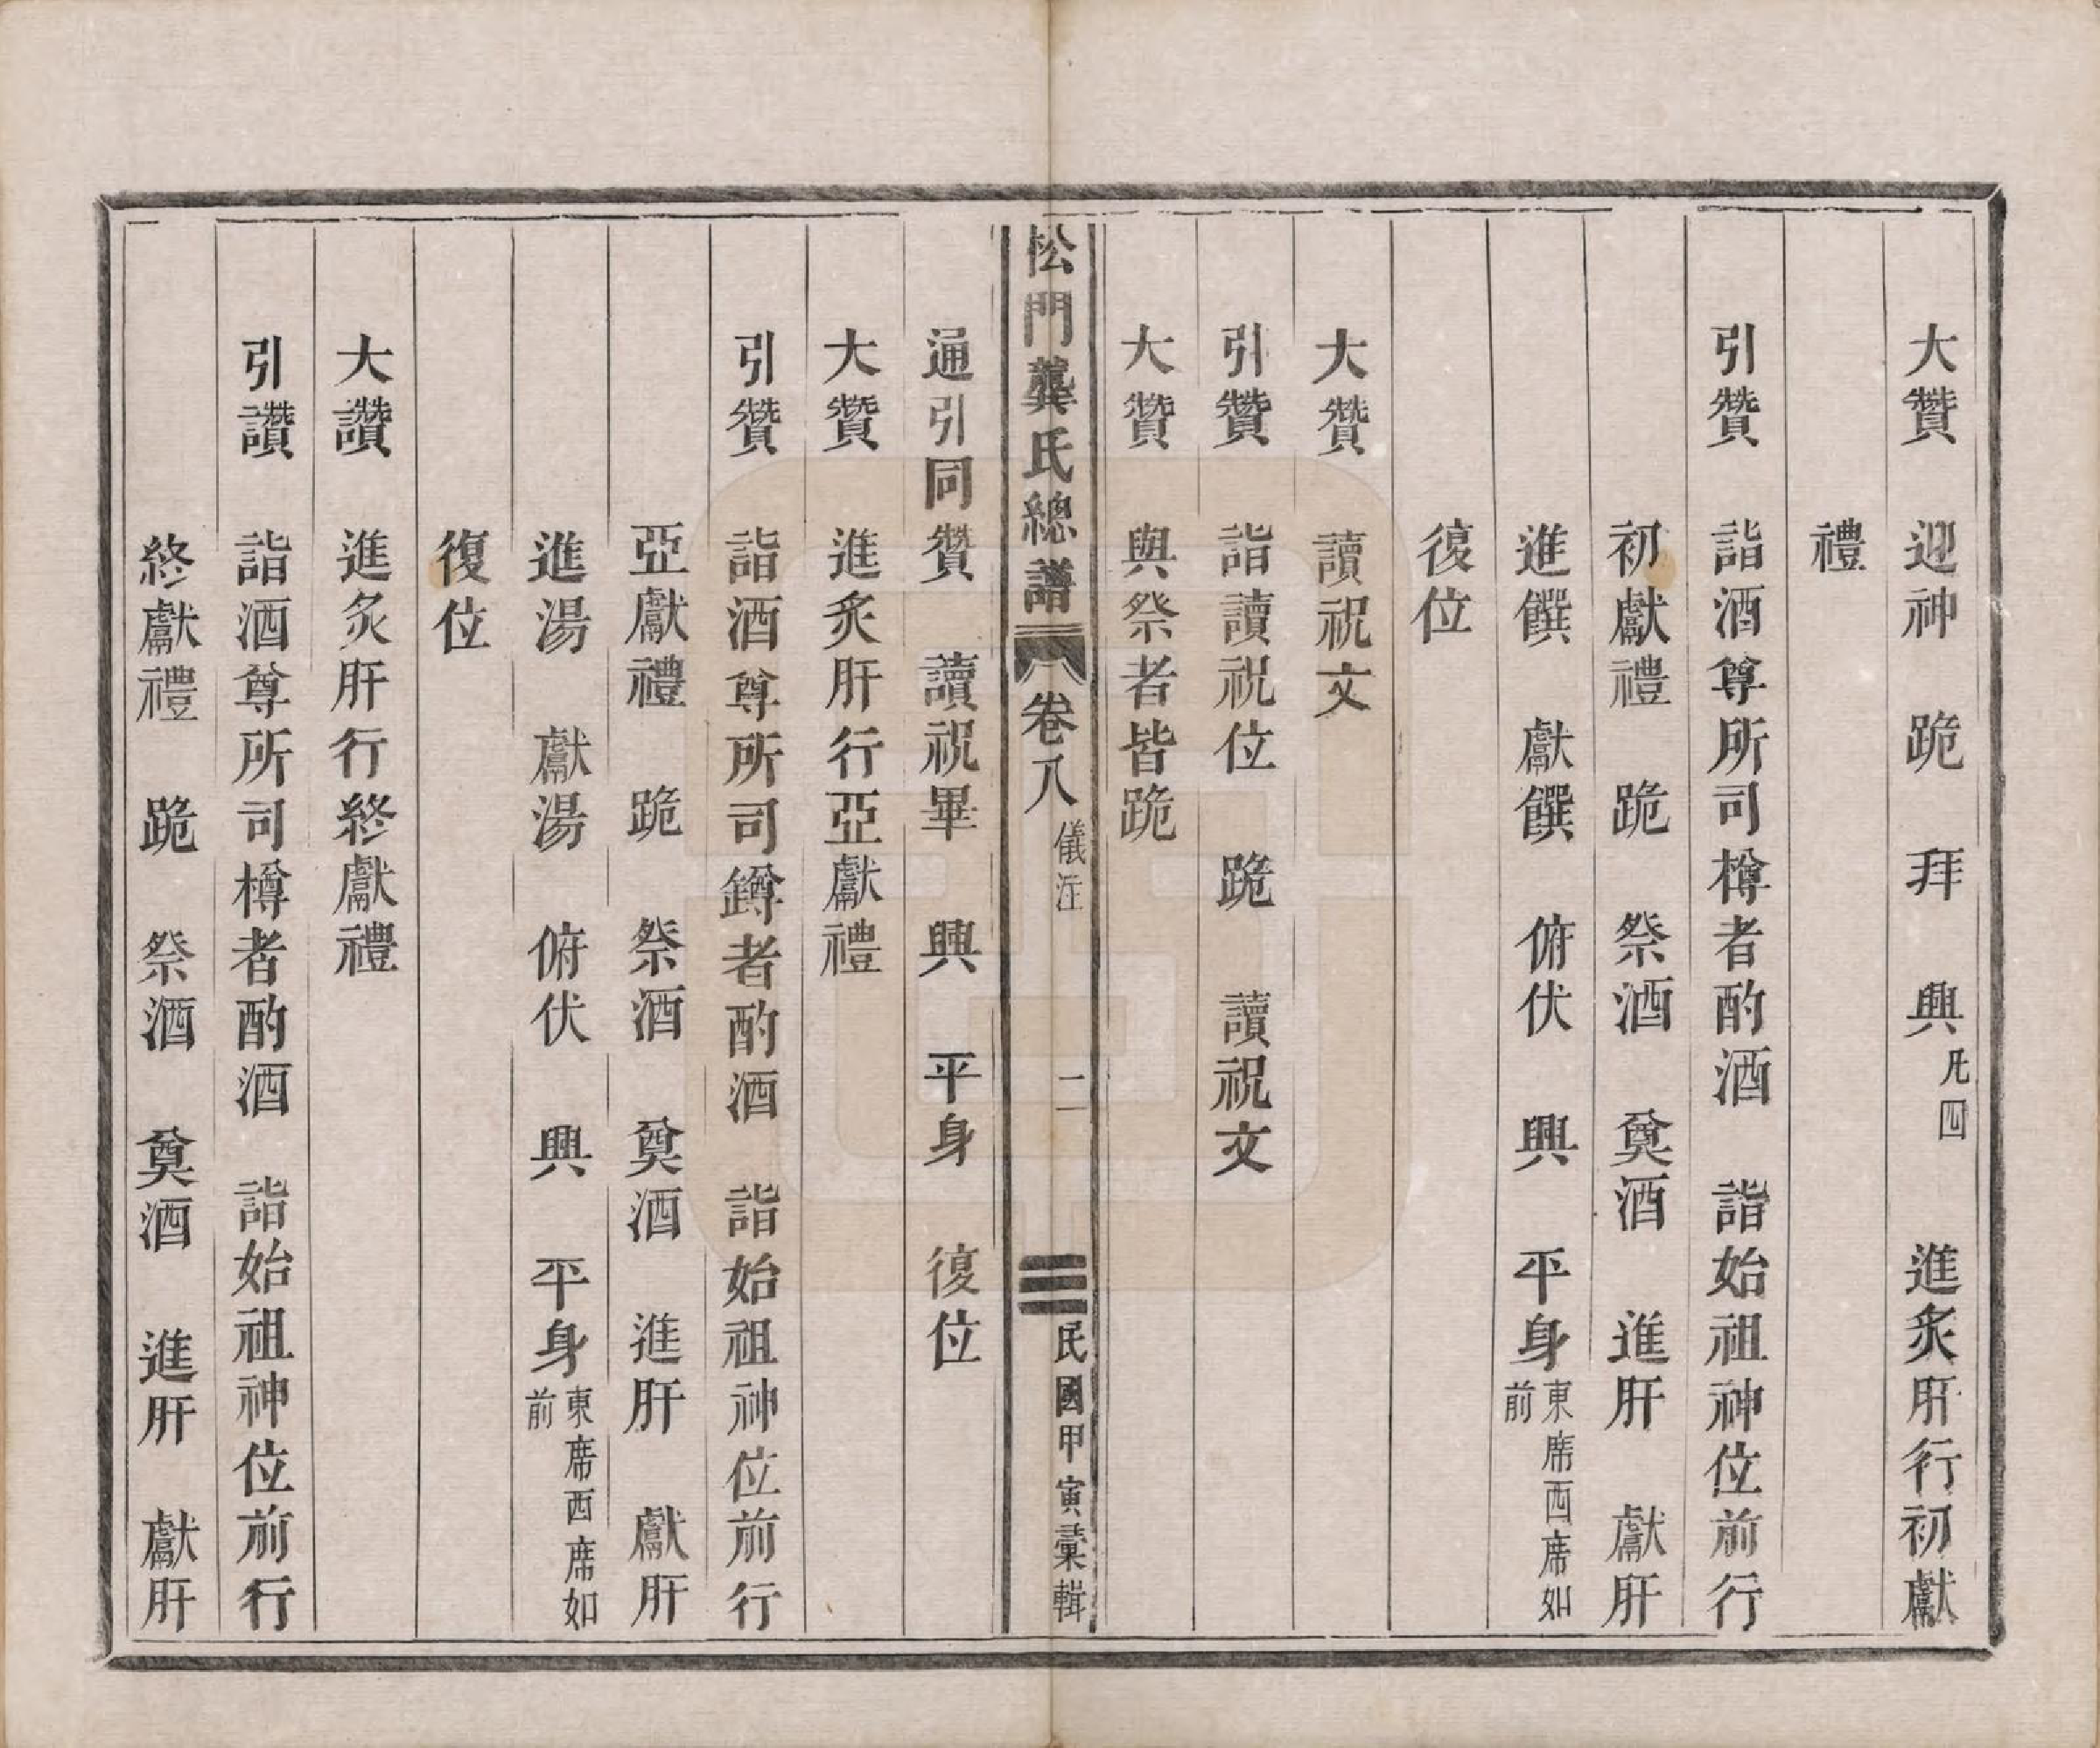 大贊　迎神　跪　拜　興凡四　進炙肝行初獻
禮
引贊　詣酒尊所司樽者酌酒　詣始祖神位前行
初獻禮　跪　祭酒　奠酒　進肝　獻肝
進饌　獻饌　俯伏　興　平身東席西席如前
復位
大贊　讀祝文
引贊　詣讀祝位　跪　讀祝文
大贊　與祭者皆跪
松門龔氏總譜　卷八　儀注　二　民國甲寅彙輯
通引同贊　讀祝畢　興　平身　復位
大贊　進炙肝行亞獻禮
引贊　詣酒尊所司鐏者酌酒　詣始祖神位前行
亞獻禮　跪　祭酒　奠酒　進肝　獻肝
進湯　獻湯　俯伏　興　平身東席西席如前
復位
大讚　進炙肝行終獻禮
引讚　詣酒尊所司樽者酌酒　詣始祖神位前行
終獻禮　跪　祭酒　奠酒　進肝　獻肝